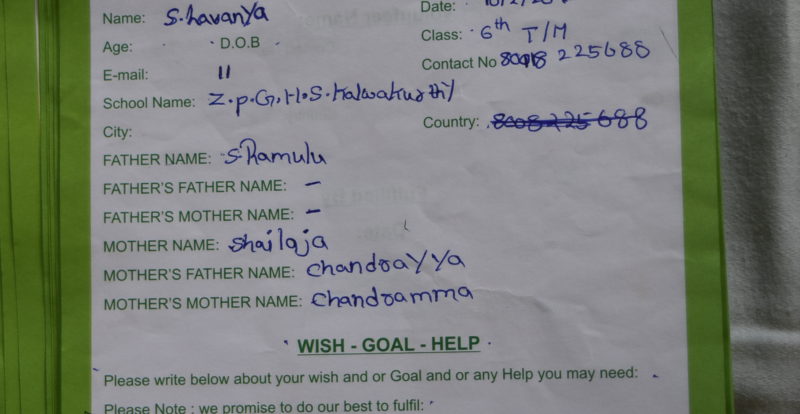 Name: S.Lavanya Date:
Age: D.O.B Class: 6th T/M
E-mail: 11 Contact No 8008 225688
School Name: Z.P.G.H.S.Kalwakurthy
City: Country: 8008225688
FATHER NAME: S.Ramulu
FATHER'S FATHER NAME: –
FATHER'S MOTHER NAME: –
MOTHER NAME: Shailaja
MOTHER'S FATHER NAME: Chandrayya
MOTHER'S MOTHER NAME: Chandramma
WISH - GOAL - HELP
Please write below about your wish and or Goal and or any Help you may need:
Please Note : we promise to do our best to fulfil: